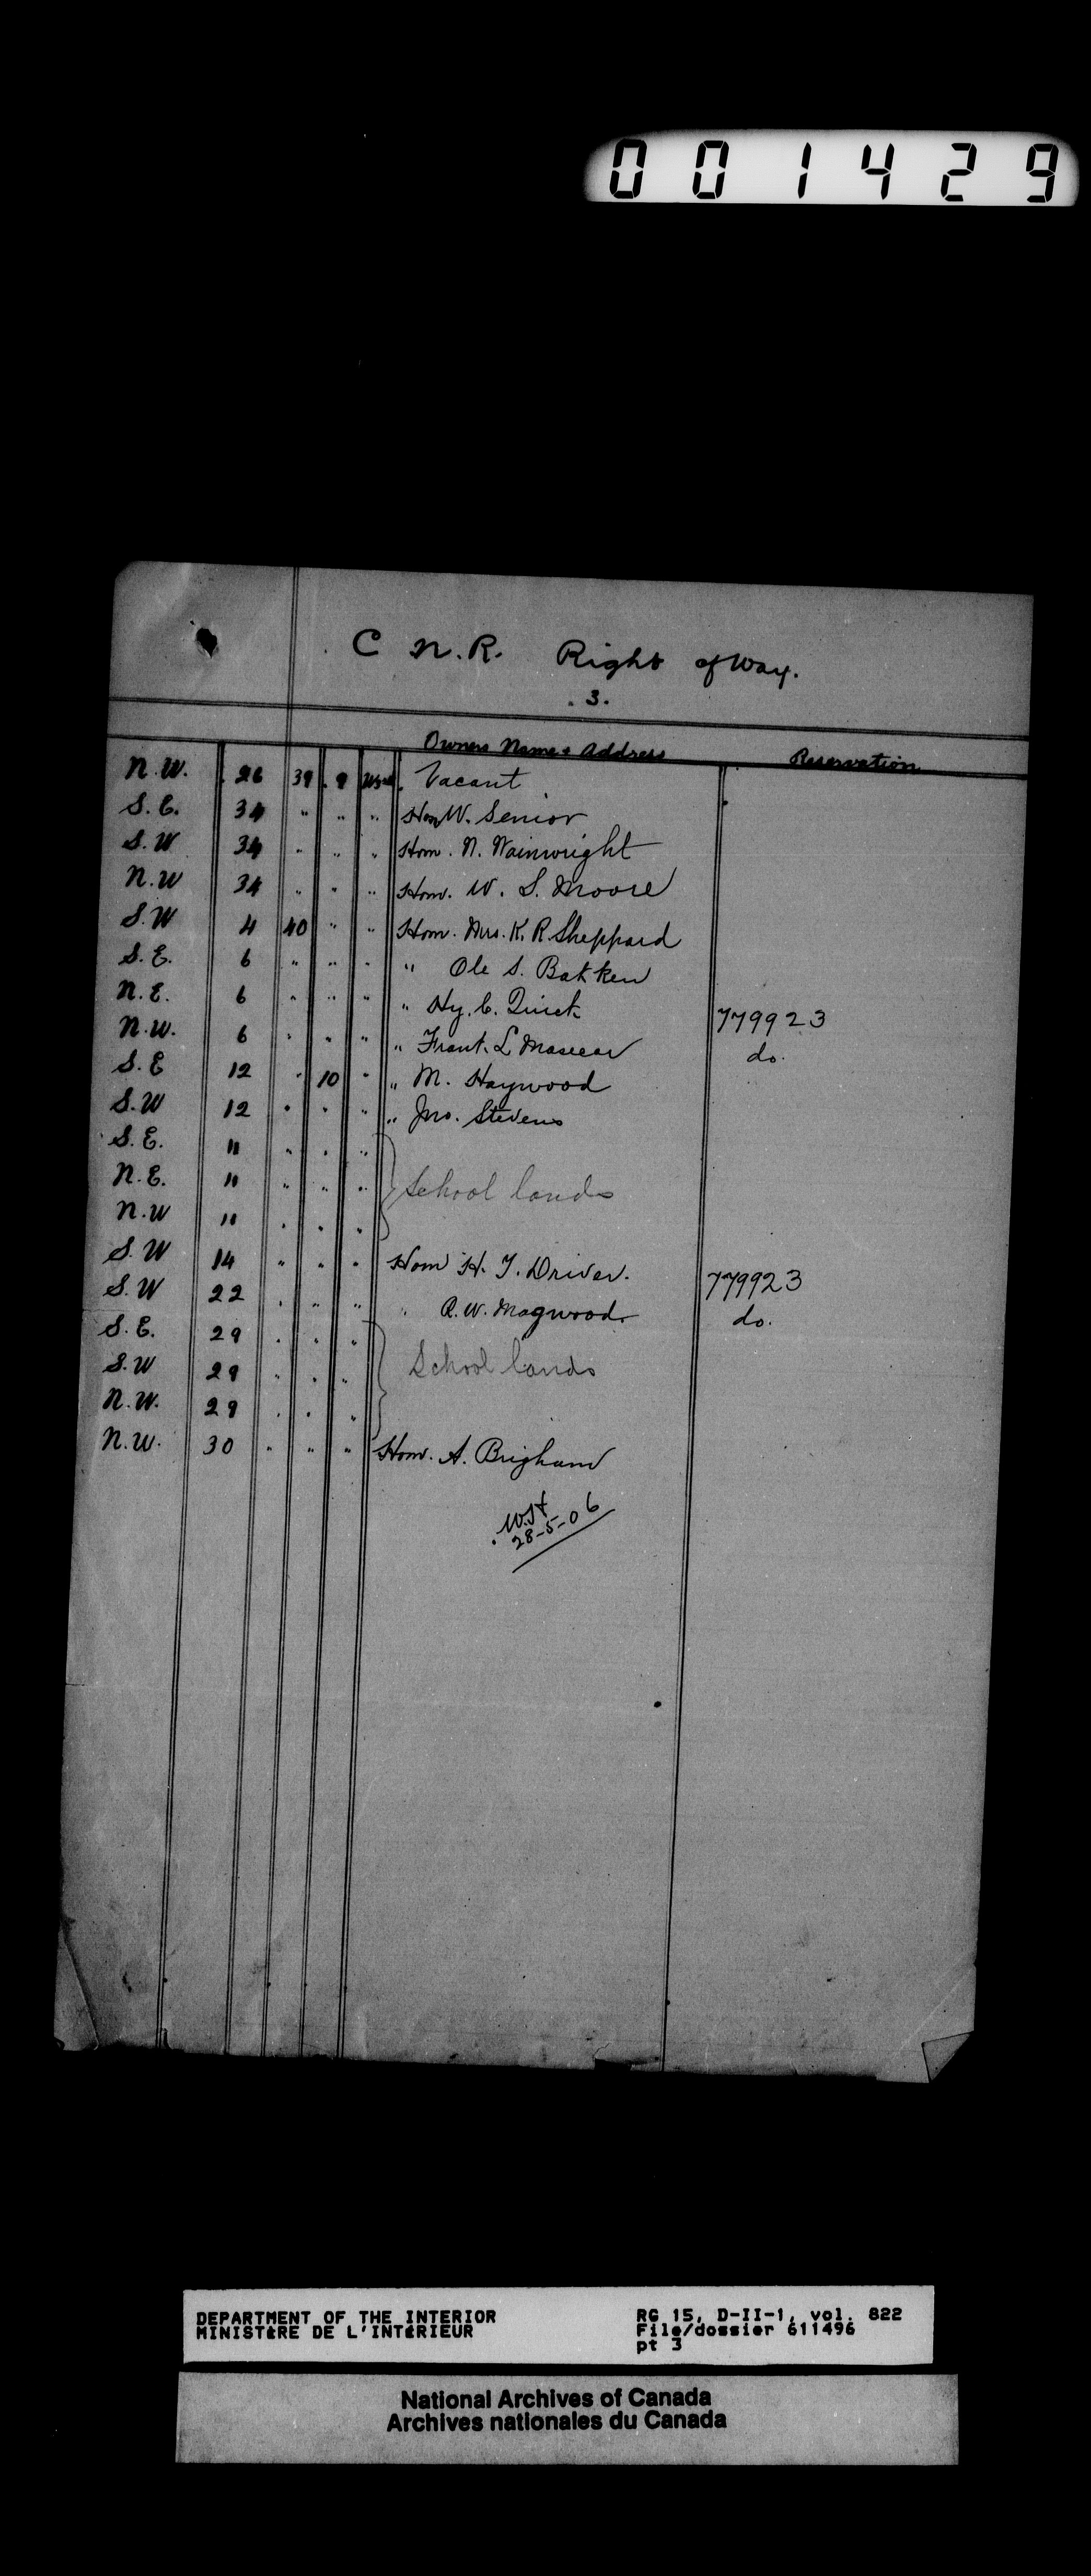 001429
C N.R. Right of Way.
.3.
Owners Name & Address Reservation
N.W. 26 39 9 W3rd Vacant
S.E. 34 " " " Hom W. Senior
S.W 34 " " " Hom. N. Wainwright
N.W 34 " " " Hom. W. S. Moore
S.W 4 40 " " Hom. Mrs. K. R Sheppard
S.E. 6 " " " " Ole S. Bakken
N.E. 6 " " " " Hy. C. Quick 779923
N.W. 6 " " " " Frank. L do.
S.E 12 " 10 " " M. Haywood
S.W 12 " " " " Jno. Stevens
S.E. 11 " " "
N.E. 11 " " " School lands
N.W 11 " " "
S.W 14 " " " Hom H. T. Driver. 779923
S.W 22 " " " " R. W. Magwood. do.
S.E. 29 " " "
S.W 29 " " " School lands
N.W. 29 " " "
N.W. 30 " " " Hom. A. Brigham
28-5-06
DEPARTMENT OF THE INTERIOR
MINISTÈRE DE L'INTÉRIEUR
RG 15, D-II-1, vol. 822
File/dossier 611496
pt 3
National Archives of Canada
Archives nationales du Canada